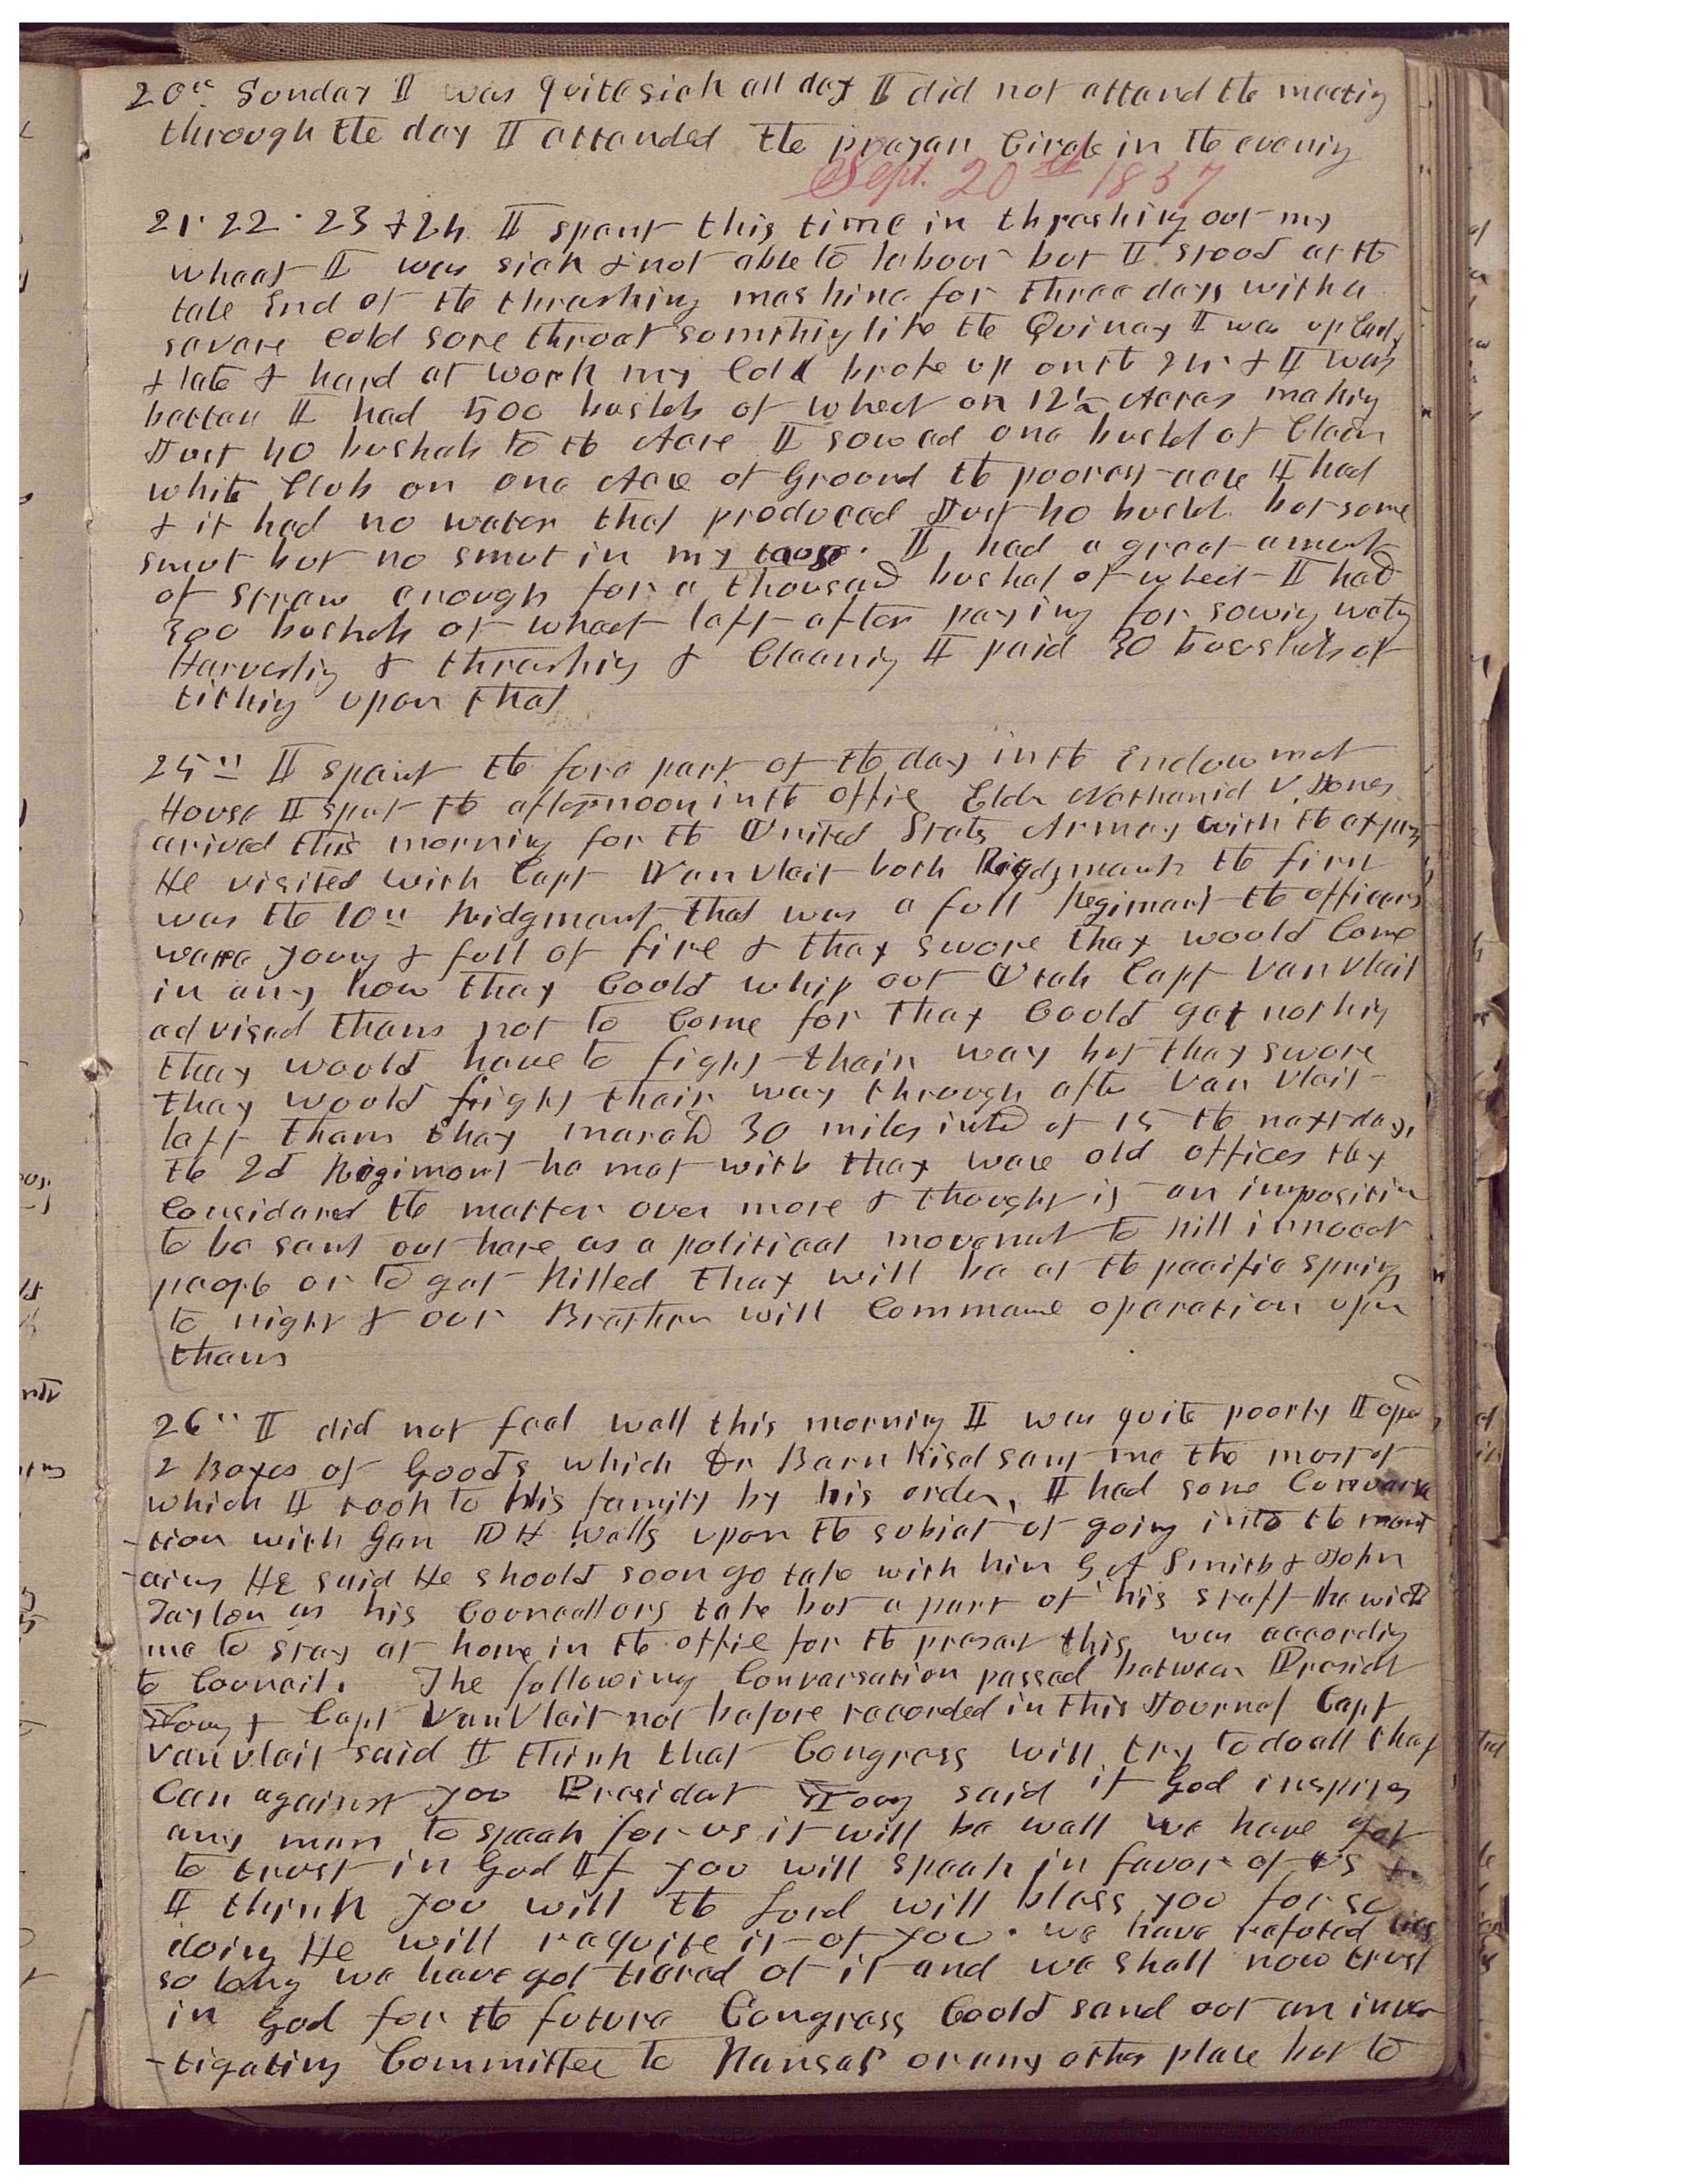 20th Sunday I was quite sick all day I did not attend the meeting
through the day I attended the prayer Circle in the evening
Sept. 20th 1857
21. 22. 23 & 24 I spent this time in thrashing out my
wheat I was sick & not able to labour but I stood at the
tale End of the thrashing mashine for three days with a
severe cold sore throat somthing like the Quinsy I was up Early
& late & hard at work my Cold broke up on the 24 & I was
better I had 500 bushels of wheat on 12½ Acres making
Just 40 bushels to the Acre I sowed one bushel of Clean
white Club on one Acre of Ground the poorest acre I had
& it had no water that produced Just 40 bushels but some
smut but no smut in my taose. I had a great amout
of straw enough for a thousand bushel of wheat I had
300 bushels of wheat left after paying for sowing watg
Harvesting & thrashing & Cleaning I paid 30 bushels of
tithing upon that
25th I spent the fore part of the day in the Endowmet
House I spent the afternoon in the office Elder Nathaniel V. Jones
arived this morning for the United States Armey with the express
He visited with Capt Van Vleit both Ridgments the first
was the 10th Ridgment that was a full Regiment the officers
were young & full of fire & they swore they would Come
in any how they Could whip out Utah Capt Van Vleit
advised them not to Come for they Could get nothing
they would have to fight their way but they swore
they would fight their way through after Van Vleit
left them they marched 30 miles insted of 15 the next day,
the 2d Regiment he met with they were old offices they
Considered the matter over more & thought it an imposition
to be sent out here as a political movemet to kill innocet
people or to get killed they will be at the pacific springs
to night & our Brethren will Commence operation upon
them
26th I did not feel well this morning I was quite poorly I opend
2 Boxes of Goods which Dr Bernhisel sent me the most of
which I took to His family by his order, I had some Conversa
-tion with Gen D H Wells upon the subject of going into the mount
-ains He said He should soon go take with him G A Smith & John
Taylor as his Councellors take but a part of his staff He wished
me to stay at home in the office for the present this was according
to Council. The following Conversation passed between Presidet
Young & Capt Van Vleit not before recorded in this Journal Capt
Van Vleit said I think that Congress will try to do all they
Can against you President Young said if God inspires
any man to speak for us it will be well we have got
to trust in God If you will speak in favor of us &
I think you will the Lord will bless you for so
doing He will require it of you. we have refuted lies
so long we have got tiered of it and we shall now trust
in God for the future Congress Could send out an inves
-tigating Committee to Kansas or any other place but to